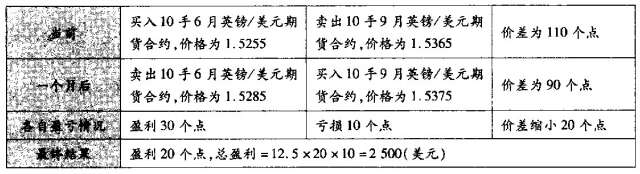 当前
买入10手6月英镑/美元期
货合约,价格为1.5255
卖出10手9月英镑/美元期
货合约,价格为1.5365
价差为110个点
一个月后
卖出10手6月英镑/美元期
货合约,价格为1.5285
买入10手9月英镑/美元期
货合约,价格为1.5375
价差为90个点
各自盈亏情况
盈利30个点
亏损10个点
价差缩小20个点
最终结果
盈利20个点,总盈利=12.5×20×10=2 500(美元)